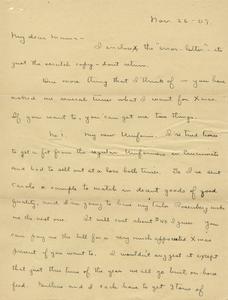 Nov. 26-07.
My dear Mama -
I enclose the "error-letter" - its
just the carbon copy - don't return.
One more thing that I think of - you have
asked me several times what I want for Xmas.
If you want to, you can get me two things.
No 1. My new Uniform. I've tried here
to get a fit from the regular Uniform in
and had to sell out at a loss both times. So I've sent
a sample to match in decent goods of good
quality, and I'm going to have my tailor Rosenberg make
me the next one. It will cost about $ I guess. You
can pay me the bill for a very much appreciable Xmas
present if you want to. I wouldn't suggest it except
that just this time of the year we all go broke on horse
feed. and I each have to get 3 tons of